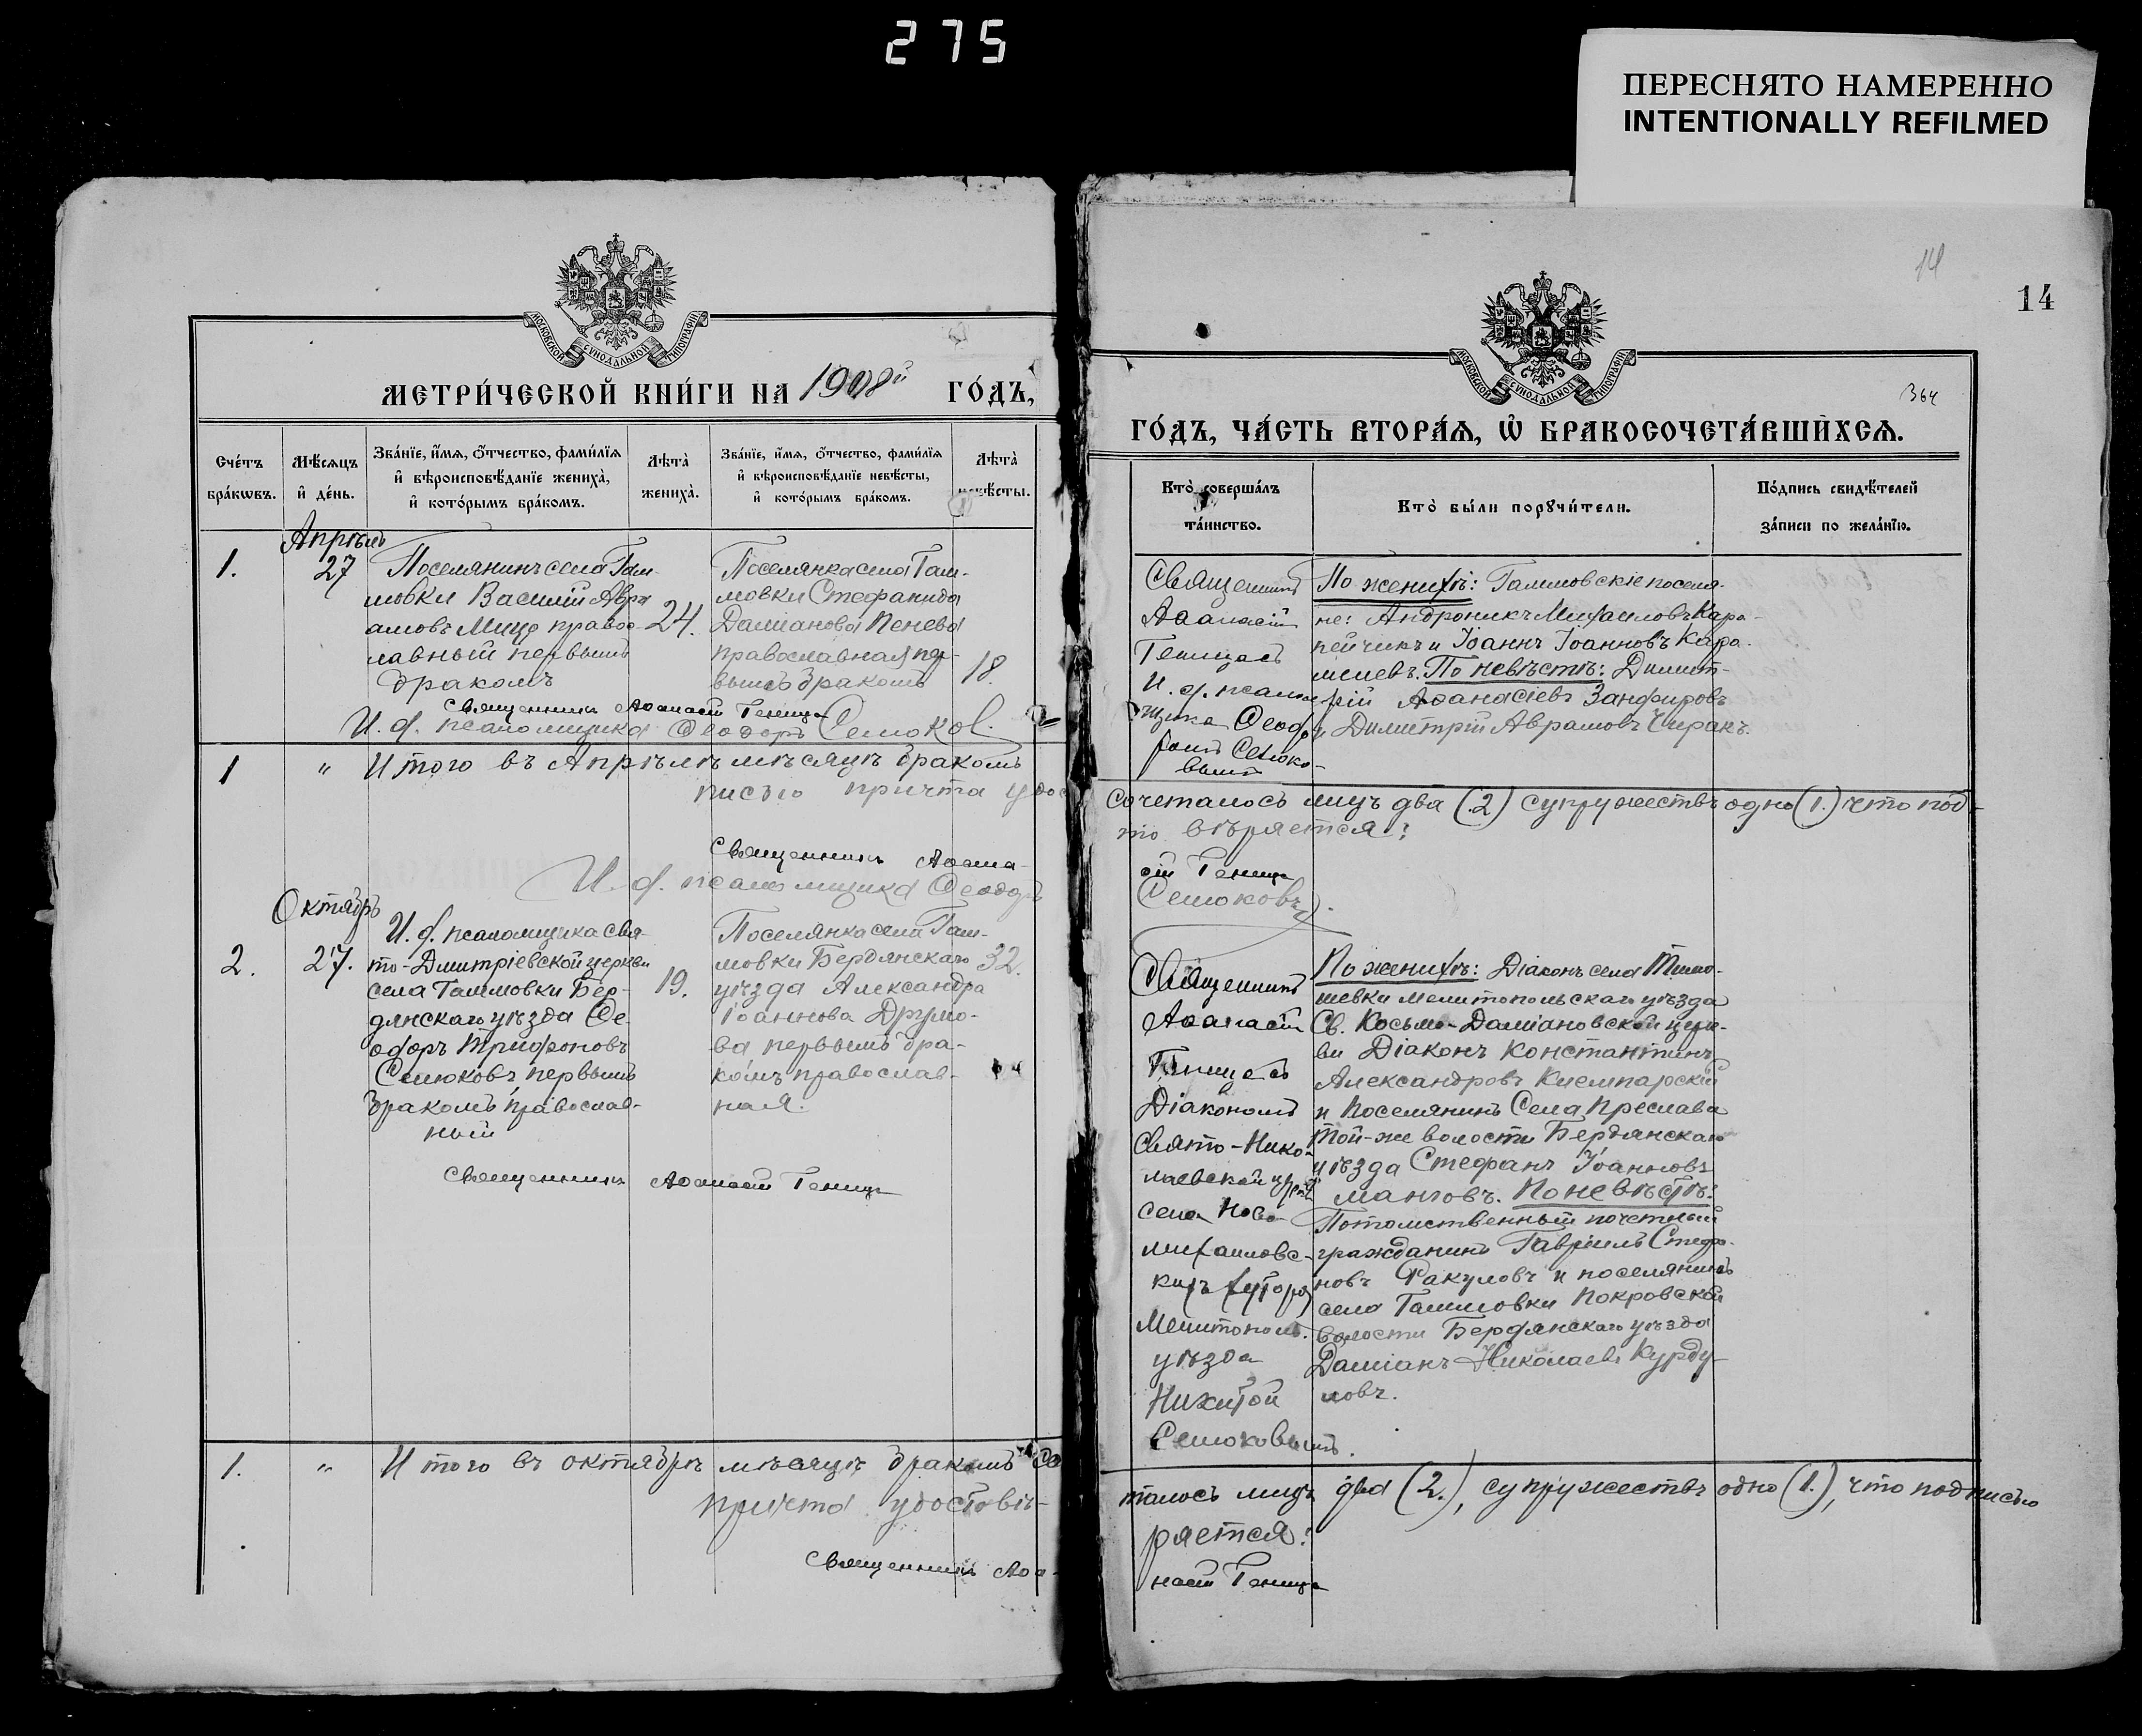 275
ПЕРЕСНЯТО НАМЕРЕННО
INTENTIONALLY REFILMED
14
14
364
МОСКОВСКОЙ СУНОДАЛЬНОЙ ТИПОГРАФІИ
МЕТРИ́ЧЕСКОЙ КНИ́ГИ НА 1908й ГО́ДЪ,
Сче́тъ бра́кѡвъ.
Мѣ́сяцъ и҆ де́нь.
Зва́нїе, и҆́мѧ, ѻ҆́тчество, фами́лїѧ
и҆ вѣроисповѣ́данїе жениха̀,
и҆ кото́рымъ бра́комъ.
Лѣ́та жениха̀.
Зва́нїе, и҆́мѧ, ѻ҆́тчество, фами́лїѧ
и҆ вѣроисповѣ́данїе невѣ́сты,
и҆ кото́рымъ бра́комъ.
Лѣ́та невѣ́сты.
Апрѣль
1.
27
Поселянинъ села Там-
мовки Василій Авра
амовъ Мицо правос-
лавный первымъ
бракомъ
24.
Поселянка села Там-
мовки Стефанида
Даміанова Пенева
православная пер-
вымъ бракомъ
18.
Священникъ Аѳанасій Геница
И. д. псаломщика Ѳеодоръ Семоков.
1 " Итого въ Апрѣлѣ мѣсяцѣ бракомъ
писью причта удос
Священникъ Аѳана-
И. д. псаломщика Ѳеодоръ
Октябрь
2.
27.
И. д. псаломщика Свя-
то-Дмитріевской церкви
села Таммовки Бер-
дянскаго уѣзда Ѳе-
одоръ Трифоновъ
Семоковъ первымъ
бракомъ православ-
ный
19.
Поселянка села Там-
мовки Бердянскаго
уѣзда Александра
Іоаннова Друмо-
ва первымъ бра-
комъ православ-
ная.
32.
Священникъ Аѳанасій Геница
1. " Итого въ октябрѣ мѣсяцѣ бракомъ со
причта удостовѣ-
Священникъ Аѳа-
МОСКОВСКОЙ СУНОДАЛЬНОЙ ТИПОГРАФІИ
ГО́ДЪ, ЧА́СТЬ ВТОРА́Ѧ, Ѡ҆ БРАКОСОЧЕТА́ВШИХСѦ.
Кто̀ соверша́лъ
та́инство.
Кто̀ бы́ли порꙋчи́тели.
По́дпись свидѣ́телей
за́писи по жела́нїю.
Священникъ
Аѳанасій
Геница съ
И. д. псалом
щика Ѳеодо
ромъ Семоко-
вымъ
По женихѣ: Таммовскіе поселя-
не: Андроникъ Михаиловъ Кара-
пейчикъ и Іоаннъ Іоанновъ Кара-
мелевъ. По невѣстѣ: Димит-
рій Аѳанасіевъ Занфировъ
и Димитрій Аврамовъ Чиракъ.
сочеталось лицъ два (2) супружествъ одно (1.) что под-
то вѣряется:
сій Геница
Семоковъ.
Священникъ
Аѳанасій
Геница съ
Діакономъ
Свято-Нико-
лаевской церкви
села Ново-
михаиловс-
кихъ хуторовъ
Мелитопол.
уѣзда
Никитой
Семоковымъ.
По женихѣ: Діаконъ села Тимо-
шевки мелитопольскаго уѣзда
Св. Косьмо-Даміановской церк-
ви Діаконъ Константинъ
Александровъ
и поселянинъ Села Преслава
той-же волости Бердянскаго
уѣзда Стефанъ Іоанновъ
Манговъ. По невѣстѣ:
Потомственный почетный
гражданинъ Гавріилъ Стефа-
новъ Факуловъ и поселянинъ
села Таммовки Покровской
волости Бердянскаго уѣзда
Даміанъ Николаевъ Курду-
мовъ.
талось лицъ два (2.), супружествъ одно (1.), что подписью
ряется:
насій Геница